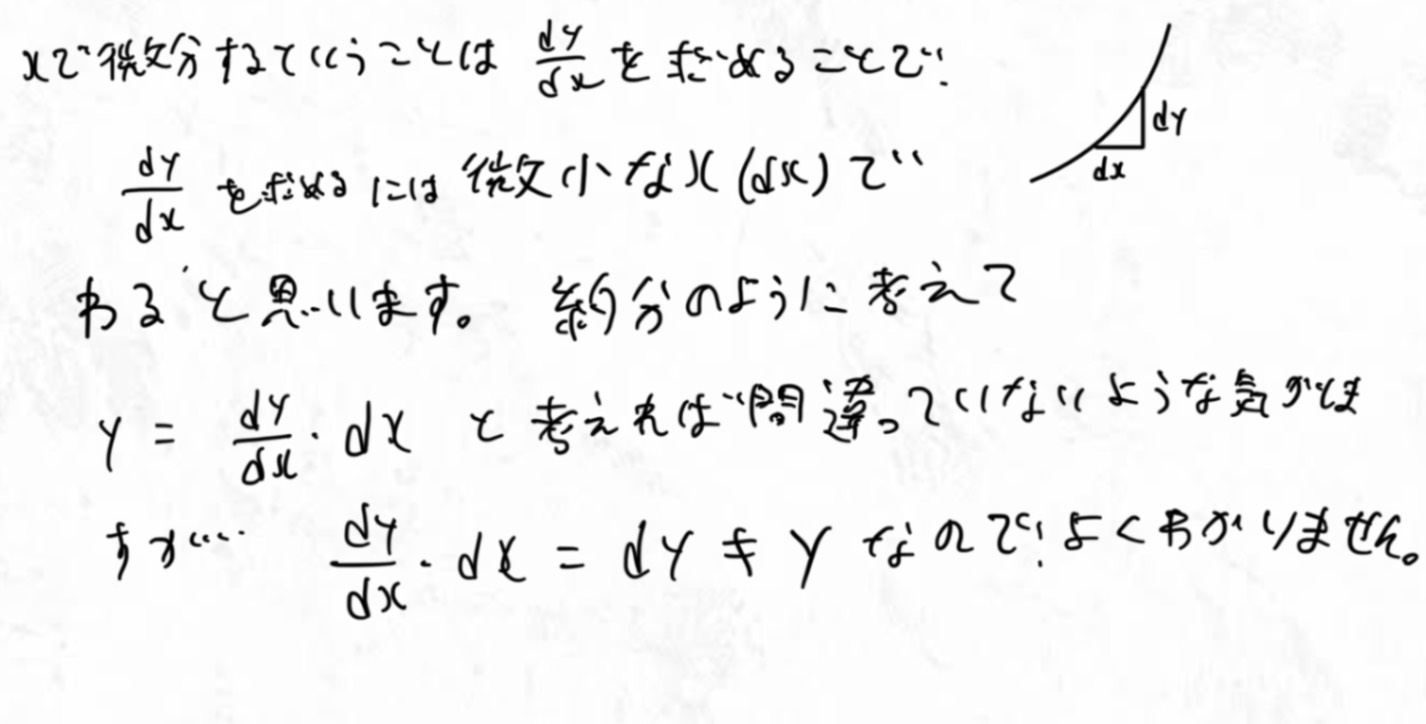 xで微分するていうことは dy/dx を求めることで、
dy
dx
dy/dx を求めるには 微小なx(dx)で
わると思います。 約分のように考えて
y = dy/dx・dx と考えれば間違っていないような気がしま
すが… dy/dx・dx = dy ≠ y なので、よくわかりません。